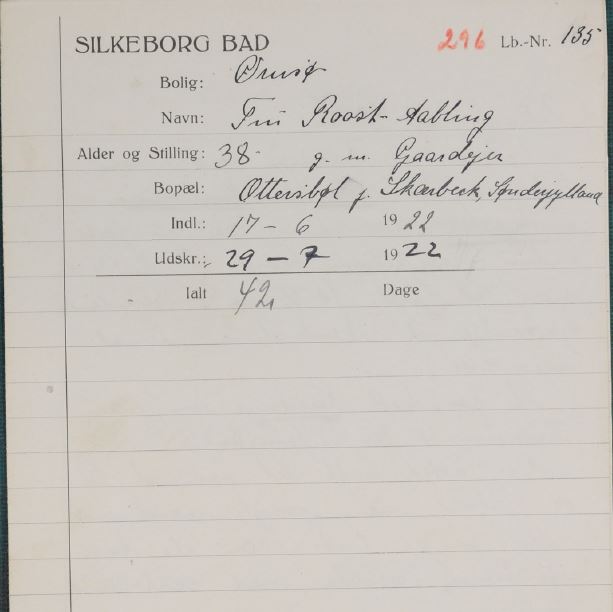 SILKEBORG BAD 296 Lb.-Nr. 135
Bolig: Ørnsø
Navn: Fru Roost-Aabling
Alder og Stilling: 38 g. m. Gaardejer
Bopæl: Ottersbøl p. Skærbeck, Sønderjylland
Indl.: 17 - 6 1922
Udskr.: 29 - 7 1922
Ialt 42 Dage